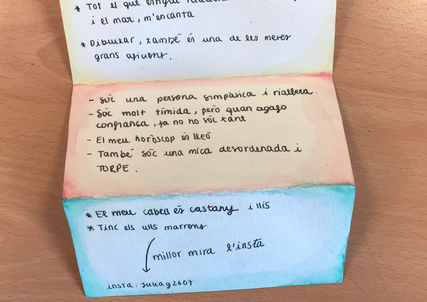 * Tot el que
i el mar, m'encanta
* Dibuixar, també és una de les meves
grans aficions.
- Sóc una persona simpàtica i riallera.
- Sóc molt tímida, però quan agafo
confiança, ja no ho sóc tant
- El meu horòscop és lleó
- També sóc una mica desordenada i
TORPE.
* El meu cabell és castany i llis
* Tinc els ulls marrons
millor mira l'insta
insta: